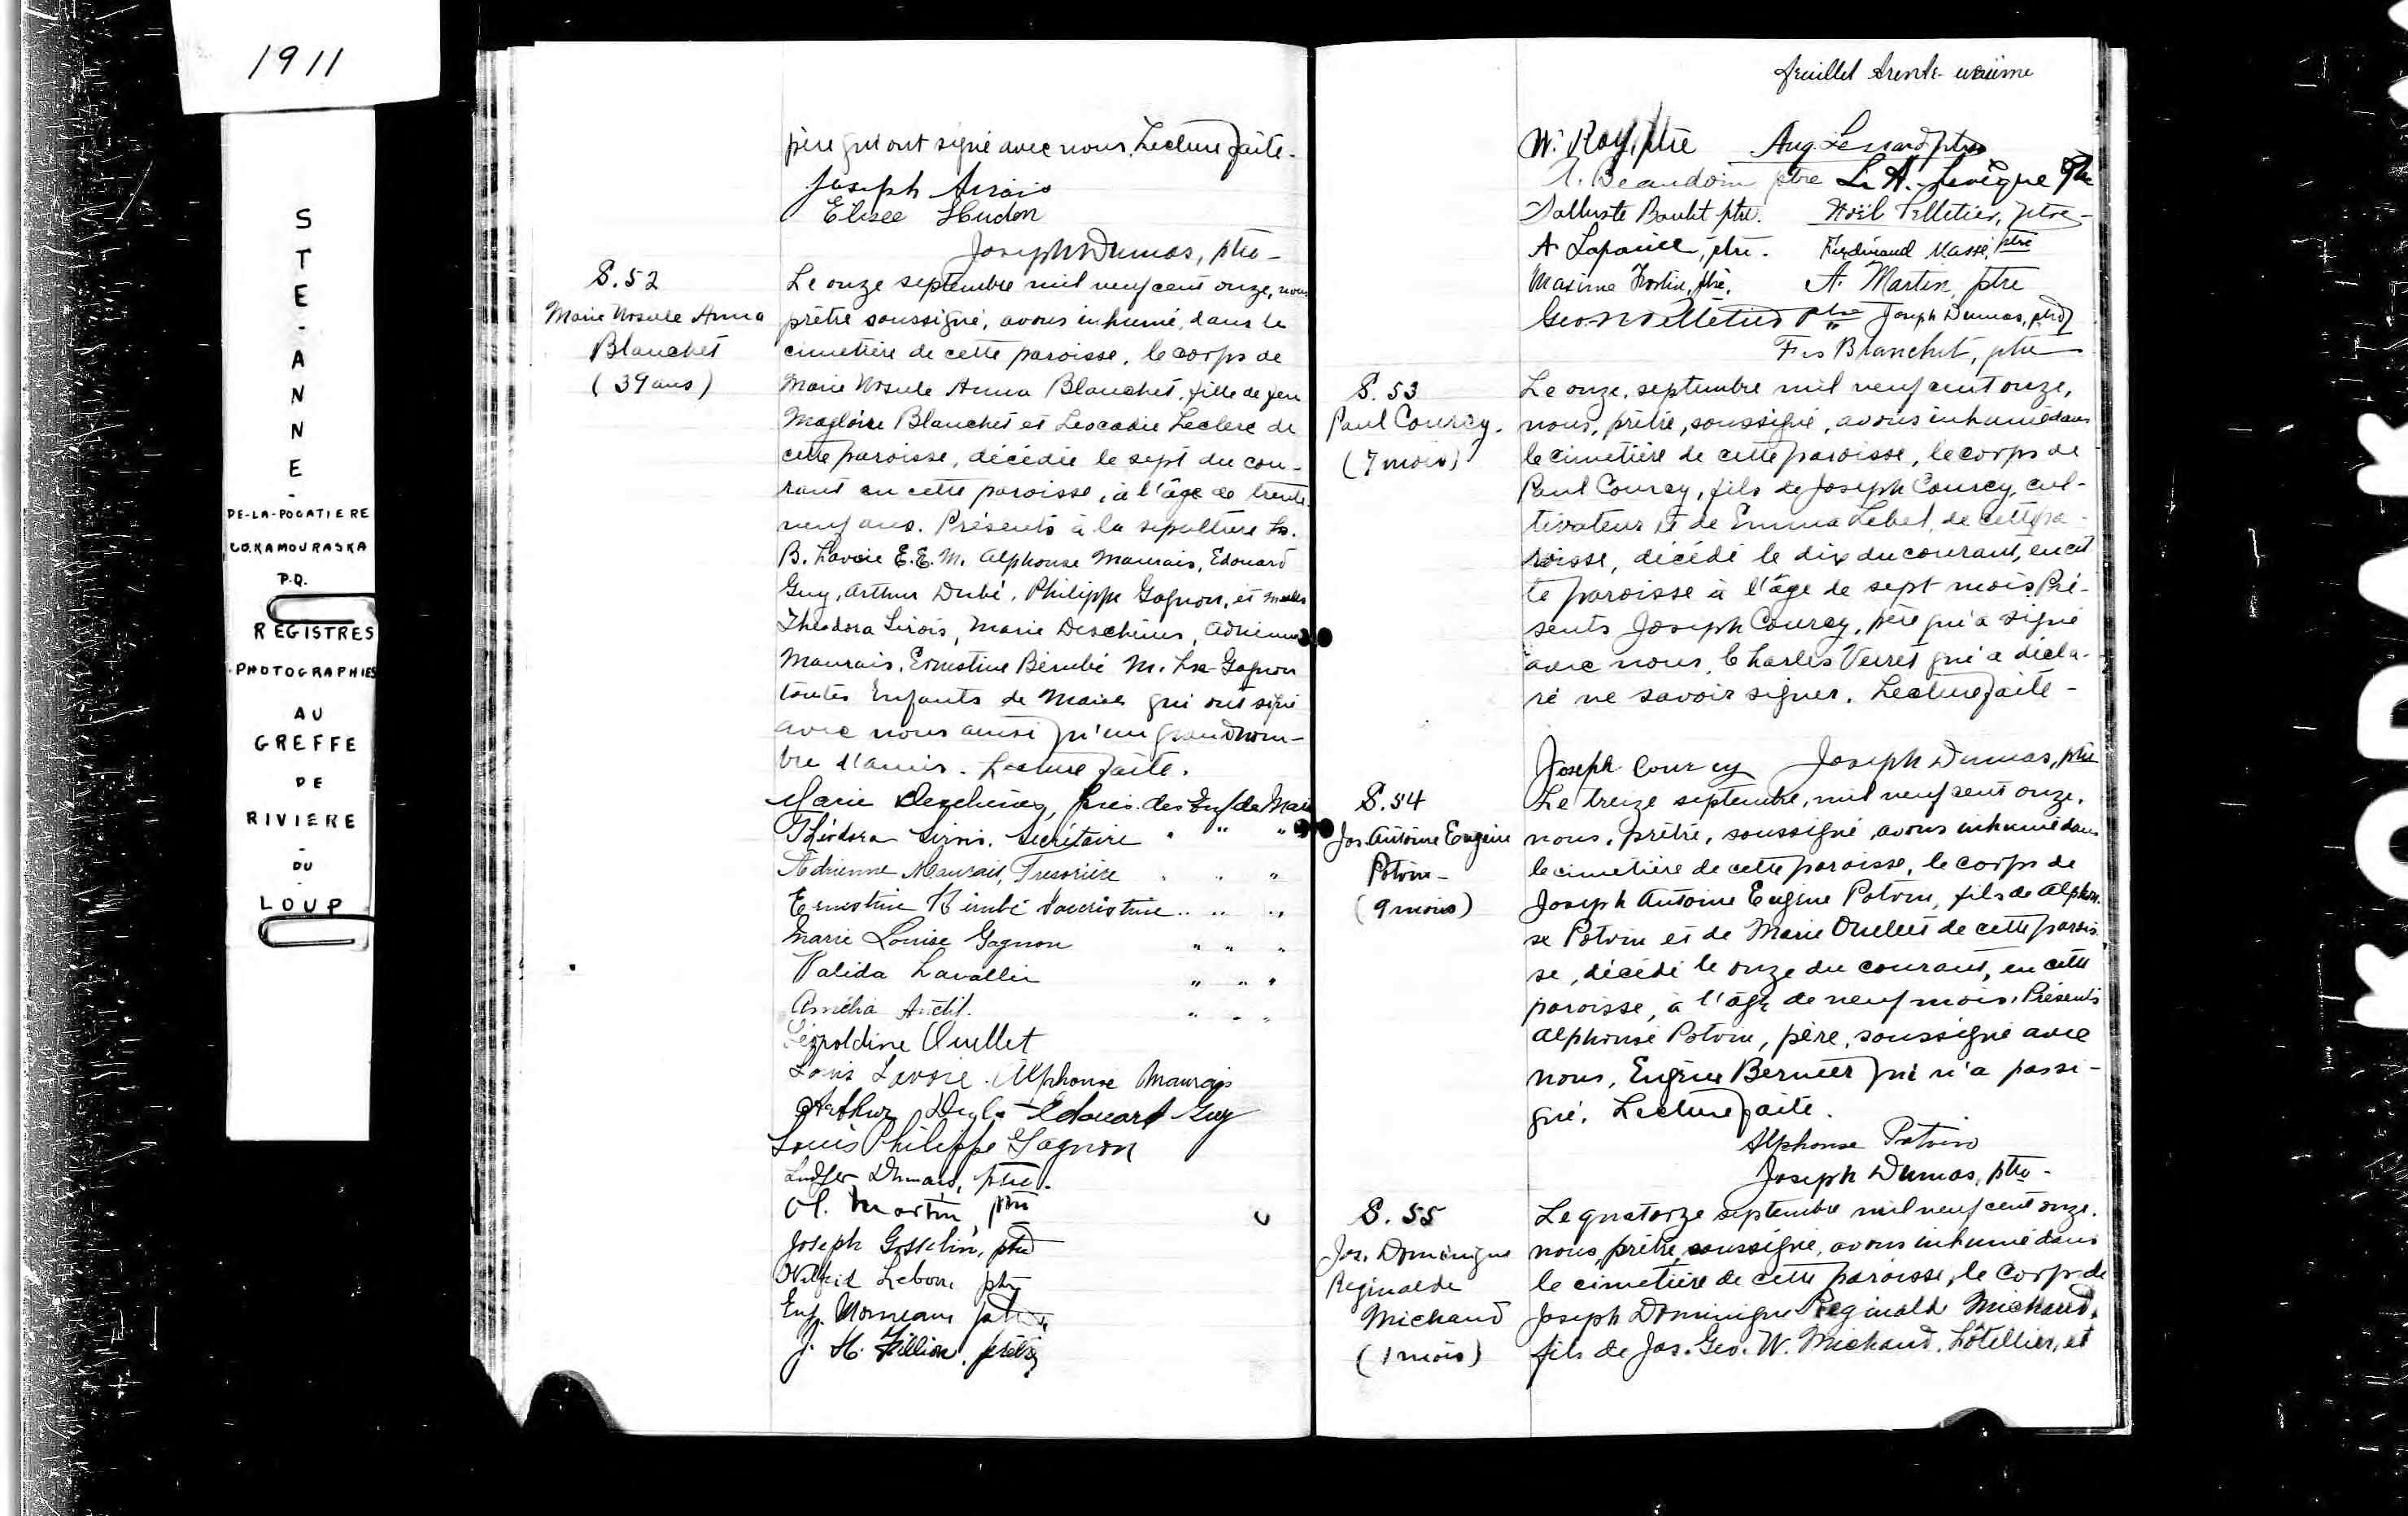 1911
STE-ANNE-
DE-LA-POCATIERE
CO. KAMOURASKA
P.Q.
REGISTRES
PHOTOGRAPHIES
AU
GREFFE
DE
RIVIERE
-
DU
LOUP
père qui ont signé avec nous. Lecture faite.
Joseph
Elisée Hudon
Joseph Dumas, ptre
S. 52
Marie Ursule Anna
Blanchet
(39 ans)
Le onze septembre mil neuf cent onze, nous
prêtre soussigné, avons inhumé, dans le
cimetière de cette paroisse, le corps de
Marie Ursule Anna Blanchet, fille de feu
Magloire Blanchet et Léocadie Leclerc de
cette paroisse, décédée le sept du cou-
rant en cette paroisse, à l'âge de trente
neuf ans. Présents à la sépulture Ls.
B. Lavoie E.E.M. Alphonse Maurais, Edouard
Guy, Arthur Dubé, Philippe Gagnon, et Melles
Théodora Sirois, Marie Deschênes, Adrienne
Maurais, Ernestine Bérubé M. Lse Gagnon
toutes Enfants de Marie qui ont signé
avec nous ainsi qu'un grand nom-
bre d'amis. Lecture faite.
Marie Deschênes, Prés. des Enf. de Marie
Théodora Sirois, Secrétaire " " "
Adrienne Maurais, Trésorière " " "
Ernestine Bérubé Sacristine " " "
Marie Louise Gagnon " " "
Valida Lavallée " " "
Amélia Anctil " " "
Léopoldine Ouellet
Louis Lavoie. Alphonse Maurais
Arthur Edouard Guy
Louis Philippe Gagnon
Ludger Dumais, ptre.
O. Martin, ptre
Joseph Gosselin, ptre
Wilfrid Lebon, ptre
Eug. Morneau ptre
J. H. Fillion, prêtre
feuillet trente-unième
W. Roy, ptre Aug. Lessard ptre
A. Beaudoin ptre L. A. Levêque Ptre
Salluste Boulet ptre. Noël Pelletier, ptre
A Lapointe, ptre. Ferdinand Massé, ptre
Maxime Fortin, ptre. A. Martin, ptre
Geo. Pelletier ptre Joseph Dumas, ptre
Frs Blanchet, ptre
S. 53
Paul Courcy.
(7 mois)
Le onze, septembre mil neuf cent onze,
nous, prêtre, soussigné, avons inhumé dans
le cimetière de cette paroisse, le corps de
Paul Courcy, fils de Joseph Courcy, cul-
tivateur et de Emma Lebel, de cette pa-
roisse, décédé le dix du courant, en cet
te paroisse à l'âge de sept mois. Pré-
sents Joseph Courcy, père qui a signé
avec nous, Charles Verret qui a décla-
ré ne savoir signer. Lecture faite -
Joseph Courcy Joseph Dumas, ptre
S. 54
Jos. Antoine Eugène
Potvin -
(9 mois)
Le treize septembre, mil neuf cent onze,
nous, prêtre, soussigné avons inhumé dans
le cimetière de cette paroisse, le corps de
Joseph Antoine Eugène Potvin, fils de Alphon-
se Potvin et de Marie Ouellet de cette parois-
se, décédé le onze du courant, en cette
paroisse, à l'âge de neuf mois. Présents
Alphonse Potvin, père, soussigné avec
nous, Eugène Bernier qui n'a pas si-
gné. Lecture faite.
Alphonse Potvin
Joseph Dumas, ptre -
S. 55
Jos. Dominique
Réginalde
Michaud
(1 mois)
Le quatorze septembre mil neuf cent onze,
nous, prêtre, soussigné, avons inhumé dans
le cimetière de cette paroisse, le corps de
Joseph Dominique Réginald Michaud,
fils de Jos. Geo. W. Michaud, hôtellier, et
KODAK